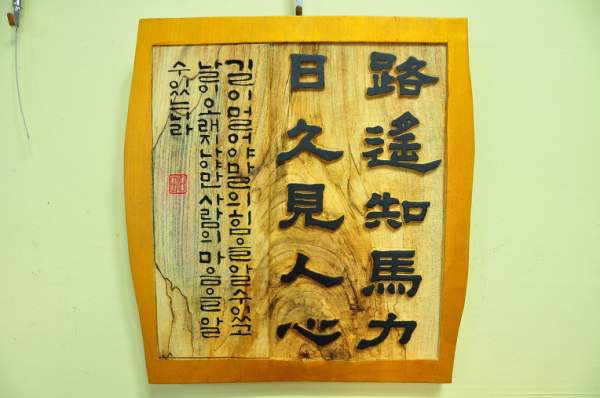 路遙知馬力
日久見人心
길이 멀어야 말의 힘을 알 수 있고
날이 오래 지나야만 사람의 마음을 알
수 있느니라